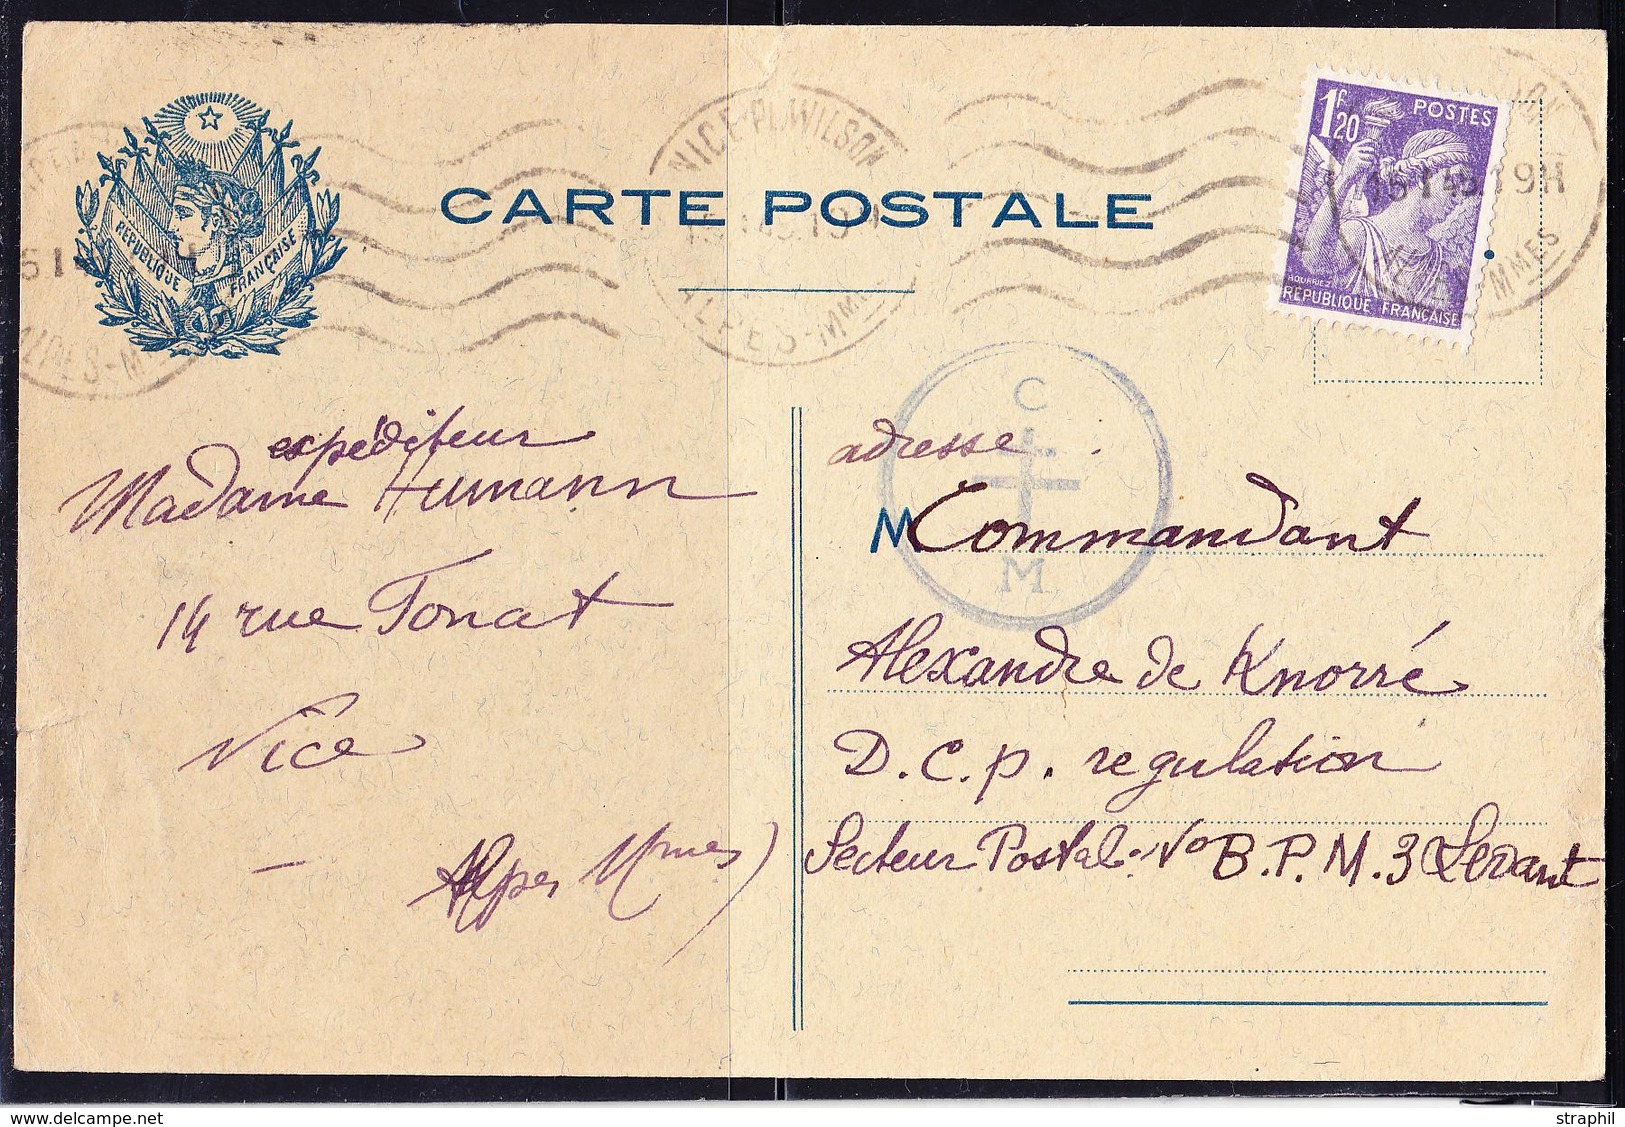 RÉPUBLIQUE FRANÇAISE
CARTE POSTALE
NICE-PL. WILSON
ALPES-MMES
1F20
POSTES
HOURRIEZ
RÉPUBLIQUE FRANÇAISE
19H
expéditeur
Madame Humann
14 rue Tonat
Nice
Alpes Mmes)
C
M
adresse
M Commandant
Alexandre de Knorré
D.C.p. regulation
Secteur Postal No B.P.M.3 Levant
delcampe.net
straphil